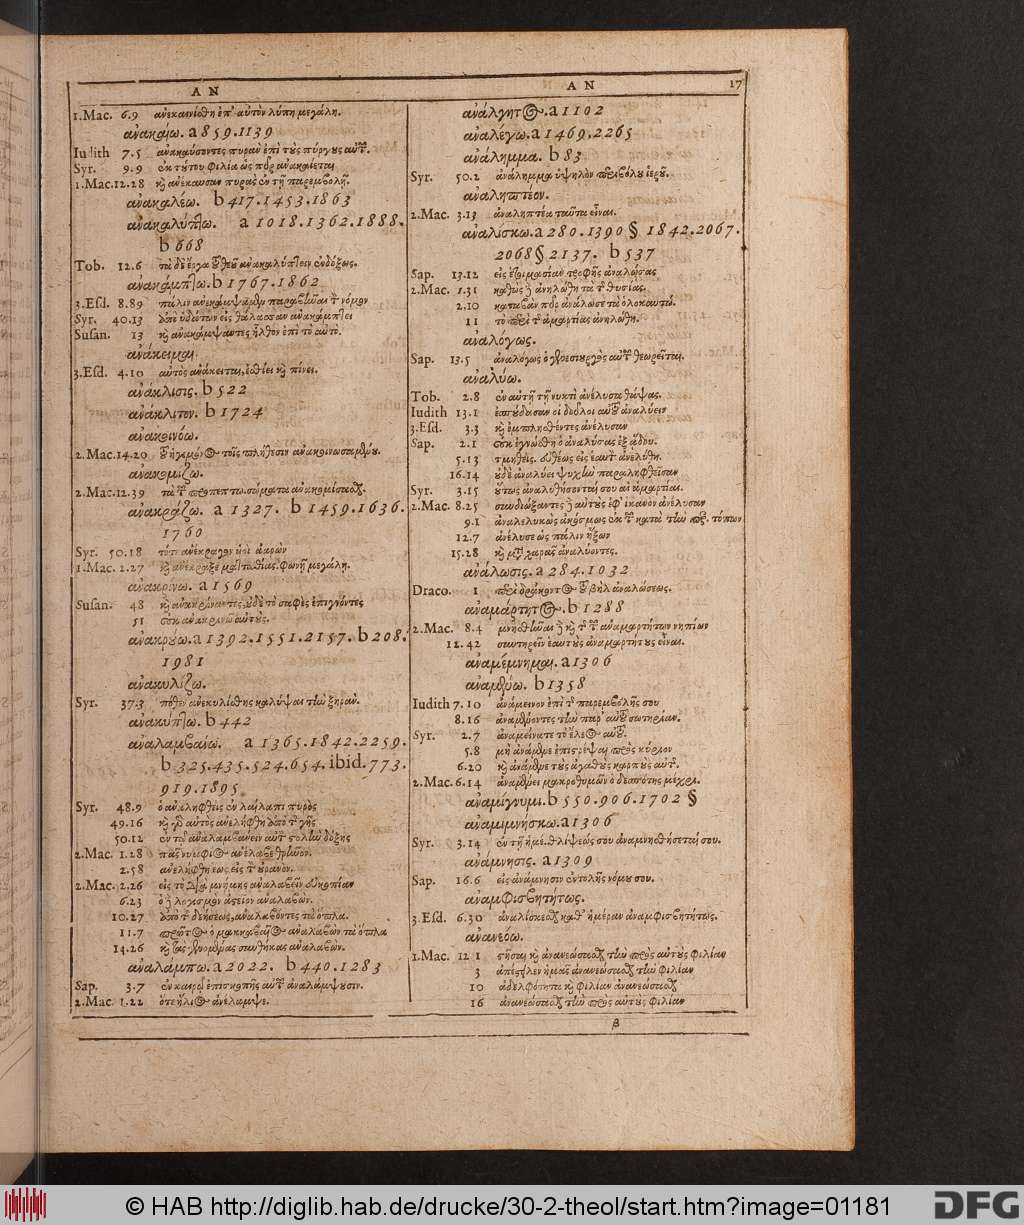 AN
1.Mac. 6.9 ἀνεκαινίσθη ἐπ' αὐτὸν λύπη μεγάλη.
ἀνακαίω. a 859. 1139
Iudith 7.5 ἀνακαύσαντες πυρὰν ἐπὶ τοὺς πύργους αὐτῶν.
Syr. 9.9 ἐκ τούτου φιλία ὡς πῦρ ἀνακαίεται
1.Mac. 12.28 καὶ ἀνέκαυσαν πυρὰς ἐν τῇ παρεμβολῇ.
ἀνακαλέω. b 417. 1453. 1863
ἀνακαλύπτω. a 1018. 1362. 1888.
b 668
Tob. 12.6 τὰ δὲ ἔργα τοῦ θεοῦ ἀνακαλύπτειν ἐνδόξως.
ἀνακάμπτω. b 1767. 1862
3.Esd. 8.89 πάλιν ἀνεκάμψαμεν παραβῆναι τὸν νόμον
Syr. 40.13 ἀπὸ ὑδάτων εἰς θάλασσαν ἀνακάμπτει
Susan. 13 καὶ ἀνακάμψαντες ἦλθον ἐπὶ τὸ αὐτό.
ἀνάκειμαι.
3.Esd. 4.10 αὐτὸς ἀνάκειται, ἐσθίει καὶ πίνει.
ἀνάκλισις. b 522
ἀνάκλιτον. b 1724
ἀνακοινόω.
2.Mac. 14.20 τοῦ ἡγεμόνος τοῖς πλήθεσιν ἀνακοινωσαμένου.
ἀνακομίζω.
2.Mac. 12.39 τὰ τῶν προπεπτω. σώματα ἀνακομίσασθαι.
ἀνακράζω. a 1327. b 1459. 1636.
1760
Syr. 50.18 τότε ἀνέκραγον υἱοὶ ἀαρὼν
1.Mac. 2.27 καὶ ἀνέκραξε ματταθίας φωνῇ μεγάλῃ.
ἀνακρίνω. a 1569
Susan. 48 καὶ ἀνακρίναντες, οὐδὲ τὸ σαφὲς ἐπιγνόντες
51 ἀνακρινῶ αὐτούς.
ἀνακρούω. a 1392. 1551. 2157. b 208.
1981
ἀνακυλίζω.
Syr. 37.3 πόθεν ἀνεκυλίσθης καλύψαι τὴν ξηρὰν.
ἀνακύπτω. b 442
ἀναλαμβαίω. a 1365. 1842. 2259.
b 325. 435. 524. 654. ibid. 773.
919. 1895
Syr. 48.9 ὁ ἀναληφθεὶς ἐν λαίλαπι πυρὸς
49.16 καὶ αὐτὸς ἀνελήφθη ἀπὸ τῆς γῆς
50.12 ἐν τῷ ἀναλαμβάνειν αὐτὸν στολὴν δόξης
2.Mac. 1.28 πᾶς νυμφίος ἀνέλαβε θρῆνον.
2.58 ἀνελήφθη ἕως εἰς τὸν οὐρανὸν.
2.Mac. 2.26 εἰς τὸ διὰ μνήμης ἀναλαβεῖν εὐκοπίαν
6.23 ὁ λογισμὸν ἀστεῖον ἀναλαβὼν.
10.27 ἀπὸ τῆς δεήσεως, ἀναλαβόντες τὰ ὅπλα.
11.7 πρῶτος ὁ μακκαβαῖος ἀναλαβὼν τὰ ὅπλα
14.26 καὶ τὰς γενομένας συνθήκας ἀναλαβὼν.
ἀναλάμπω. a 2022. b 440. 1283
Sap. 3.7 ἐν καιρῷ ἐπισκοπῆς αὐτῶν ἀναλάμψουσιν.
2.Mac. 1.22 ὅτε ἥλιος ἀνέλαμψε.
AN 17
ἀνάλγητος. a 1102
ἀναλέγω. a 1469. 2265
ἀνάλημμα. b 83
Syr. 50.2 ἀνάλημμα ὑψηλὸν περιβόλου ἱεροῦ.
ἀναληπτέον.
2.Mac. 3.13 ἀναληπτέα ταῦτα εἶναι.
ἀναλίσκω. a 280. 1390 § 1842. 2067.
2068 § 2137. b 537
Sap. 13.12 εἰς ἑτοιμασίαν τροφῆς ἀναλώσας
2.Mac. 1.31 καθὼς δὲ ἀνηλώθη τὰ τῆς θυσίας.
2.10 καταβὰν πῦρ ἀνάλωσε τὰ ὁλοκαυτώ.
11 τὸ περὶ τῆς ἁμαρτίας ἀνηλώθη.
ἀναλόγως.
Sap. 13.5 ἀναλόγως ὁ γενεσιουργὸς αὐτῶν θεωρεῖται.
ἀναλύω.
Tob. 2.8 ἐν αὐτῇ τῇ νυκτὶ ἀνέλυσα θάψας.
Iudith 13.1 ἐσπούδασαν οἱ δοῦλοι αὐτοῦ ἀναλύειν
3.Esd. 3.3 καὶ ἐμπλησθέντες ἀνέλυσαν
Sap. 2.1 οὐκ ἐγνώσθη ὁ ἀναλύσας ἐξ ᾅδου.
5.13 τμηθεὶς. εὐθέως εἰς ἑαυτὸν ἀνελύθη.
16.14 οὐδὲ ἀναλύει ψυχὴν παραληφθεῖσαν
Syr. 3.15 οὕτως ἀναλυθήσονταί σου αἱ ἁμαρτίαι.
2.Mac. 8.25 συνδιώξαντες δὲ αὐτοὺς ἐφ' ἱκανὸν ἀνέλυσαν
9.1 ἀναλελυκὼς ἀκόσμως ἐκ τῶν κατὰ τὴν περ. τόπων
12.7 ἀνέλυσε ὡς πάλιν ἥξων
15.28 καὶ μετὰ χαρᾶς ἀναλύοντες.
ἀνάλωσις. a 284. 1032
Draco. 1 περὶ δράκοντος τοῦ βὴλ ἀναλώσεως.
ἀναμάρτητος. b 1288
2.Mac. 8.4 μνησθῆναι δὲ καὶ τῆς τῶν ἀναμαρτήτων νηπίων
12.42 συντηρεῖν ἑαυτοὺς ἀναμαρτήτους εἶναι.
ἀναμέμνημαι. a 1306
ἀναμένω. b 1358
Iudith 7.10 ἀνάμεινον ἐπὶ τῆς παρεμβολῆς σου
8.16 ἀναμένοντες τὴν παρ αὐτοῦ σωτηρίαν.
Syr. 2.7 ἀναμείνατε τὸ ἔλεος αὐτοῦ.
5.8 μὴ ἀνάμενε ἐπιστρέψαι πρὸς κύριον
6.20 καὶ ἀνάμενε τοὺς ἀγαθοὺς καρποὺς αὐτῆς.
2.Mac. 6.14 ἀναμένει μακροθυμῶν ὁ δεσπότης μέχρι.
ἀναμίγνυμι. b 550. 906. 1702 §
ἀναμιμνήσκω. a 1306
Syr. 3.14 ἐν τῇ ἡμέ. θλίψεώς σου ἀναμνησθήσεταί σου.
ἀνάμνησις. a 1309
Sap. 16.6 εἰς ἀνάμνησιν ἐντολῆς νόμου σου.
ἀναμφισβητήτως.
3.Esd. 6.30 ἀναλίσκεσθαι καθ' ἡμέραν ἀναμφισβητήτως.
ἀνανεόω.
1.Mac. 12 1 στῆσαι καὶ ἀνανεώσασθαι τὴν πρὸς αὐτοὺς φιλίαν
3 ἀπέστειλεν ἡμᾶς ἀνανεώσασθαι τὴν φιλίαν
10 ἀδελφότητα καὶ φιλίαν ἀνανεώσασθαι
16 ἀνανεώσασθαι τὴν πρὸς αὐτοὺς φιλίαν
β
© HAB http://diglib.hab.de/drucke/30-2-theol/start.htm?image=01181
DFG